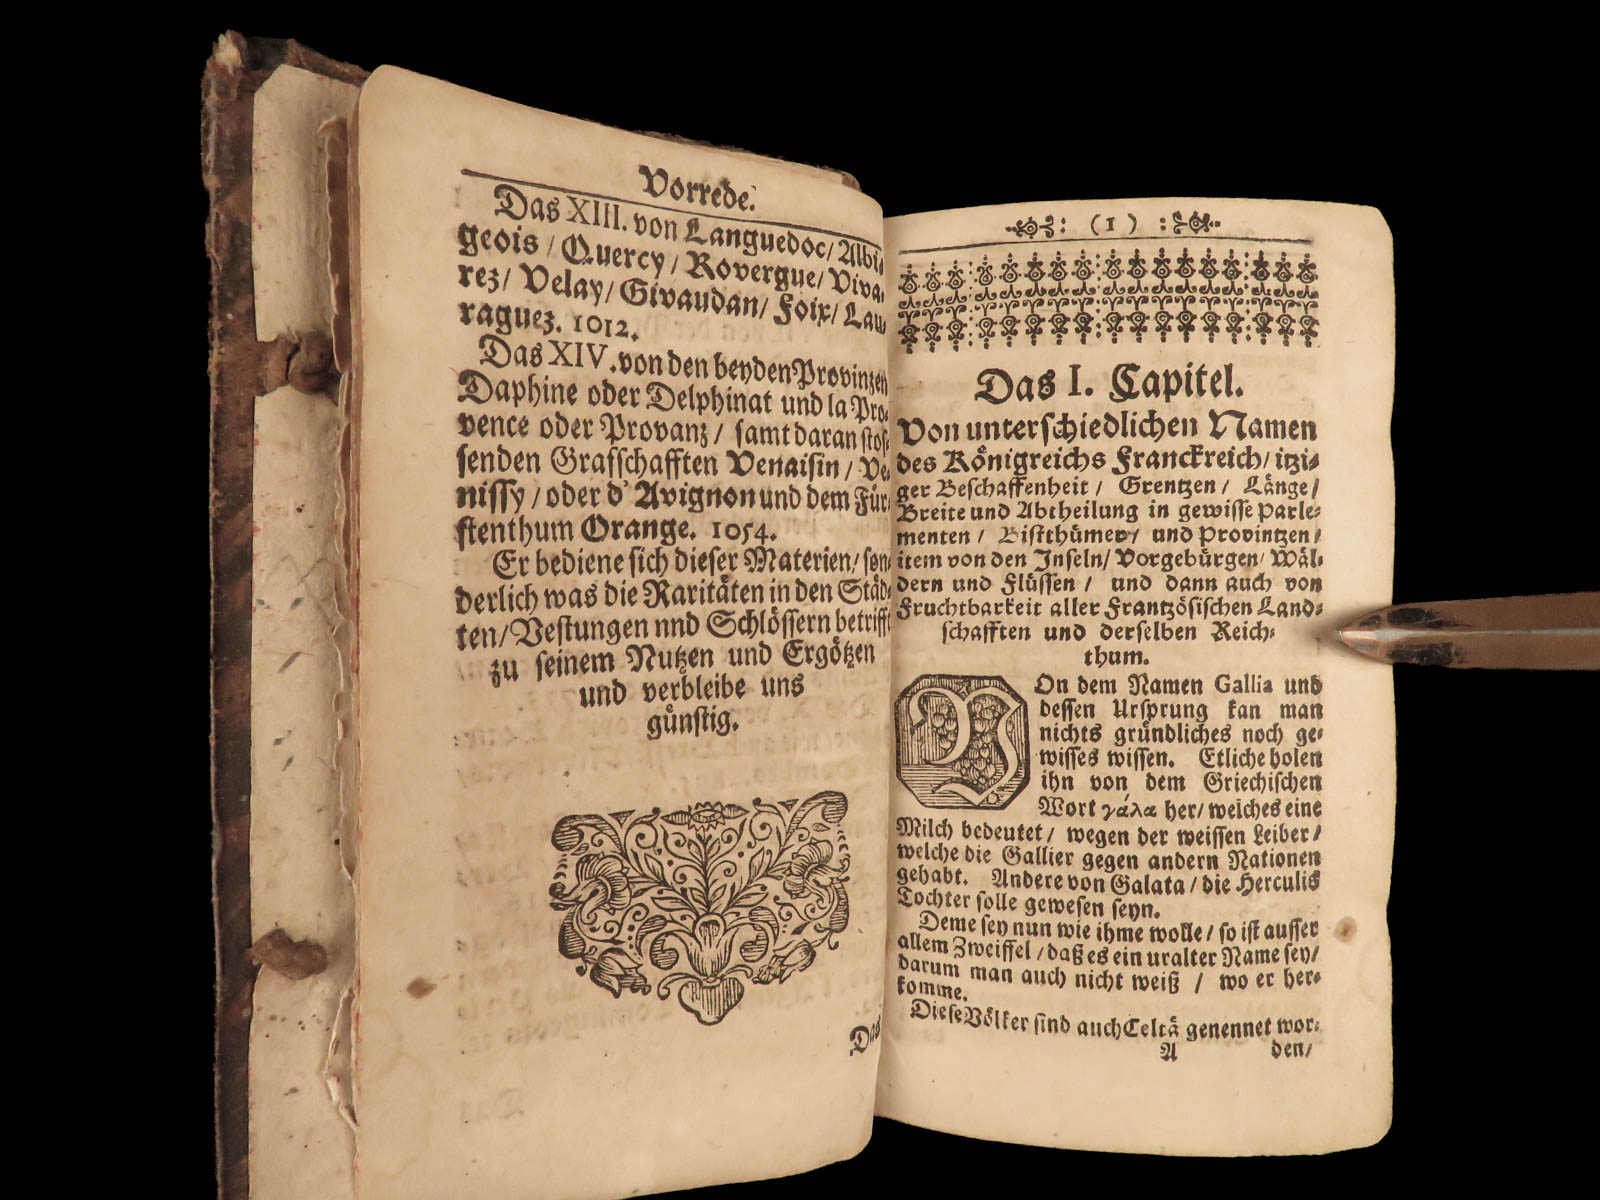 Vorrede.
Das XIII. von Languedoc/ Albi-
geois / Quercy / Rovergue/ Viva-
rez/ Velay/ Givaudan/ Foix/ Lau-
raguez. 1012.
Das XIV. von den beyden Provinzen
Daphine oder Delphinat und la Pro-
vence oder Provanz / samt daran stos-
senden Grafschafften Venaisin / Ve-
nissy / oder d' Avignon und dem Für-
stenthum Orange. 1054.
Er bediene sich dieser Materien/ son-
derlich was die Raritäten in den Städ-
ten/ Vestungen nnd Schlössern betrifft
zu seinem Nutzen und Ergötzen
und verbleibe uns
günstig.
Das
: (1) :
Das I. Capitel.
Von unterschiedlichen Namen
des Königreichs Franckreich/ itzi-
ger Beschaffenheit / Grentzen / Länge/
Breite und Abtheilung in gewisse Parle-
menten / Bistthümer/ und Provintzen /
item von den Inseln/ Vorgebürgen/ Wäl-
dern und Flüssen / und dann auch von
Fruchtbarkeit aller Frantzösischen Land-
schafften und derselben Reich-
thum.
VOn dem Namen Gallia und
dessen Ursprung kan man
nichts gründliches noch ge-
wisses wissen. Etliche holen
ihn von dem Griechischen
Wort γάλα her/ welches eine
Milch bedeutet / wegen der weissen Leiber /
welche die Gallier gegen andern Nationen
gehabt. Andere von Galata / die Herculis
Tochter solle gewesen seyn.
Deme sey nun wie ihme wolle / so ist ausser
allem Zweiffel / daß es ein uralter Name sey/
darum man auch nicht weiß / wo er her-
komme.
Diese Völker sind auch Celtä genennet wor-
A den/